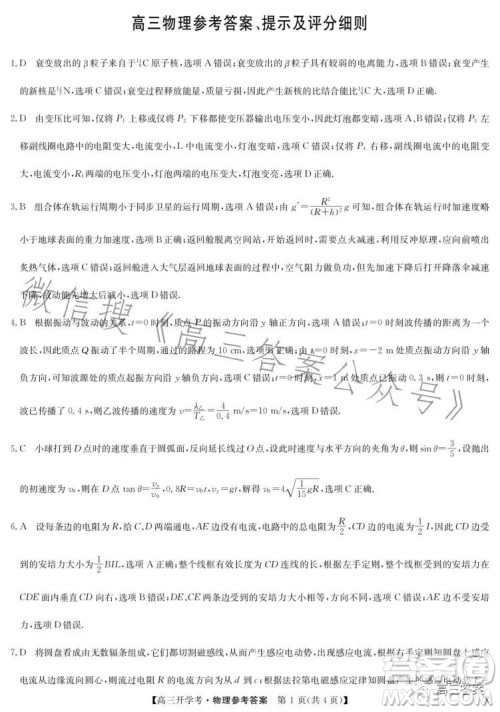 高三物理参考答案、提示及评分细则
1.D 衰变放出的β粒子来自于¹⁴₆C原子核,选项A错误;衰变放出的β粒子具有较弱的电离能力,选项B错误;衰变产生
的新核是¹⁴₇N,选项C错误;衰变过程释放能量,质量亏损,因此产生新核的比结合能比¹⁴₆C大,选项D正确.
2.D 由变压比可知,仅将P₁上移或仅将P₂下移都使变压器输出电压变小,因此灯泡都变暗,选项A、B错误;仅将P₃上
移副线圈电路中的电阻变大,电流变小,L中电流变小,灯泡变暗,选项C错误;仅将P₄右移,副线圈电路中的电阻变
大,电流变小,R₁两端的电压变小,灯泡两端的电压变大,灯泡变亮,选项D正确.
3.B 组合体在轨运行周期小于同步卫星的运行周期,选项A错误;由g′=R²/(R+h)²g可知,组合体在轨运行时加速度略
小于地球表面的重力加速度,选项B正确;返回舱脱离空间站,开始返回时,需要点火减速,利用反冲原理,应向前喷出
炙热气体,选项C错误;返回舱进入大气层返回地球表面的过程中,开始时由于引力作用加速下降,打开降落伞减速
下降,故动能先增大后减小,选项D错误.
4.B 根据振动与波动的关系,t=0时刻,质点P的振动方向沿y轴正方向,选项A错误;t=0时刻波传播的距离为一个
波长,因此质点Q振动了半个周期,通过的路程为10 cm,选项B正确;由于t=0时刻,x=-2 m处质点振动方向沿y轴
负方向,可知波源的振动方向是沿y轴负方向开始振动的,选项C错误;t=0时刻,x=1 m处质点已振动0.3 s,则
波已传播了0.4 s,则乙波传播的速度为v=λ乙/T乙=4/0.4 m/s=10 m/s,选项D错误.
5.C 小球打到D点时的速度垂直于圆弧面,反向延长线过O点,设此时速度与水平方向的夹角为θ,则sinθ=3/5,设抛出
的初速度为v₀,则在D点tanθ=v_y/v₀,0.8R=v₀t,v_y=gt,解得v₀=4√(1/15 gR),选项C正确.
6.A 设每条边的电阻为R,给C、D两端通电,AE边没有电流,电路中的总电阻为R/2,CD边的电流为1/2I,因此CD边受
到的安培力大小为1/2BIL,选项A正确;整个线框有效长度为CD连线的长,根据左手定则,整个线框受到的安培力在
CDE面内且垂直CD向右,与CD边受到的安培力大小与方向均不同,选项B、D错误;AE边不受安培力,选项C
错误.
7.D 将圆盘看成由无数辐条组成,它们都切割磁感线,从而产生感应电动势,出现感应电流,根据右手定则圆盘上感应
电流从边缘流向圆心,则流过电阻R的电流方向为从d到c;根据左手定则,圆盘受到的安培力
高三开学考·物理参考答案 第1页(共4页)
微信搜《高三答案公众号》
高三答案